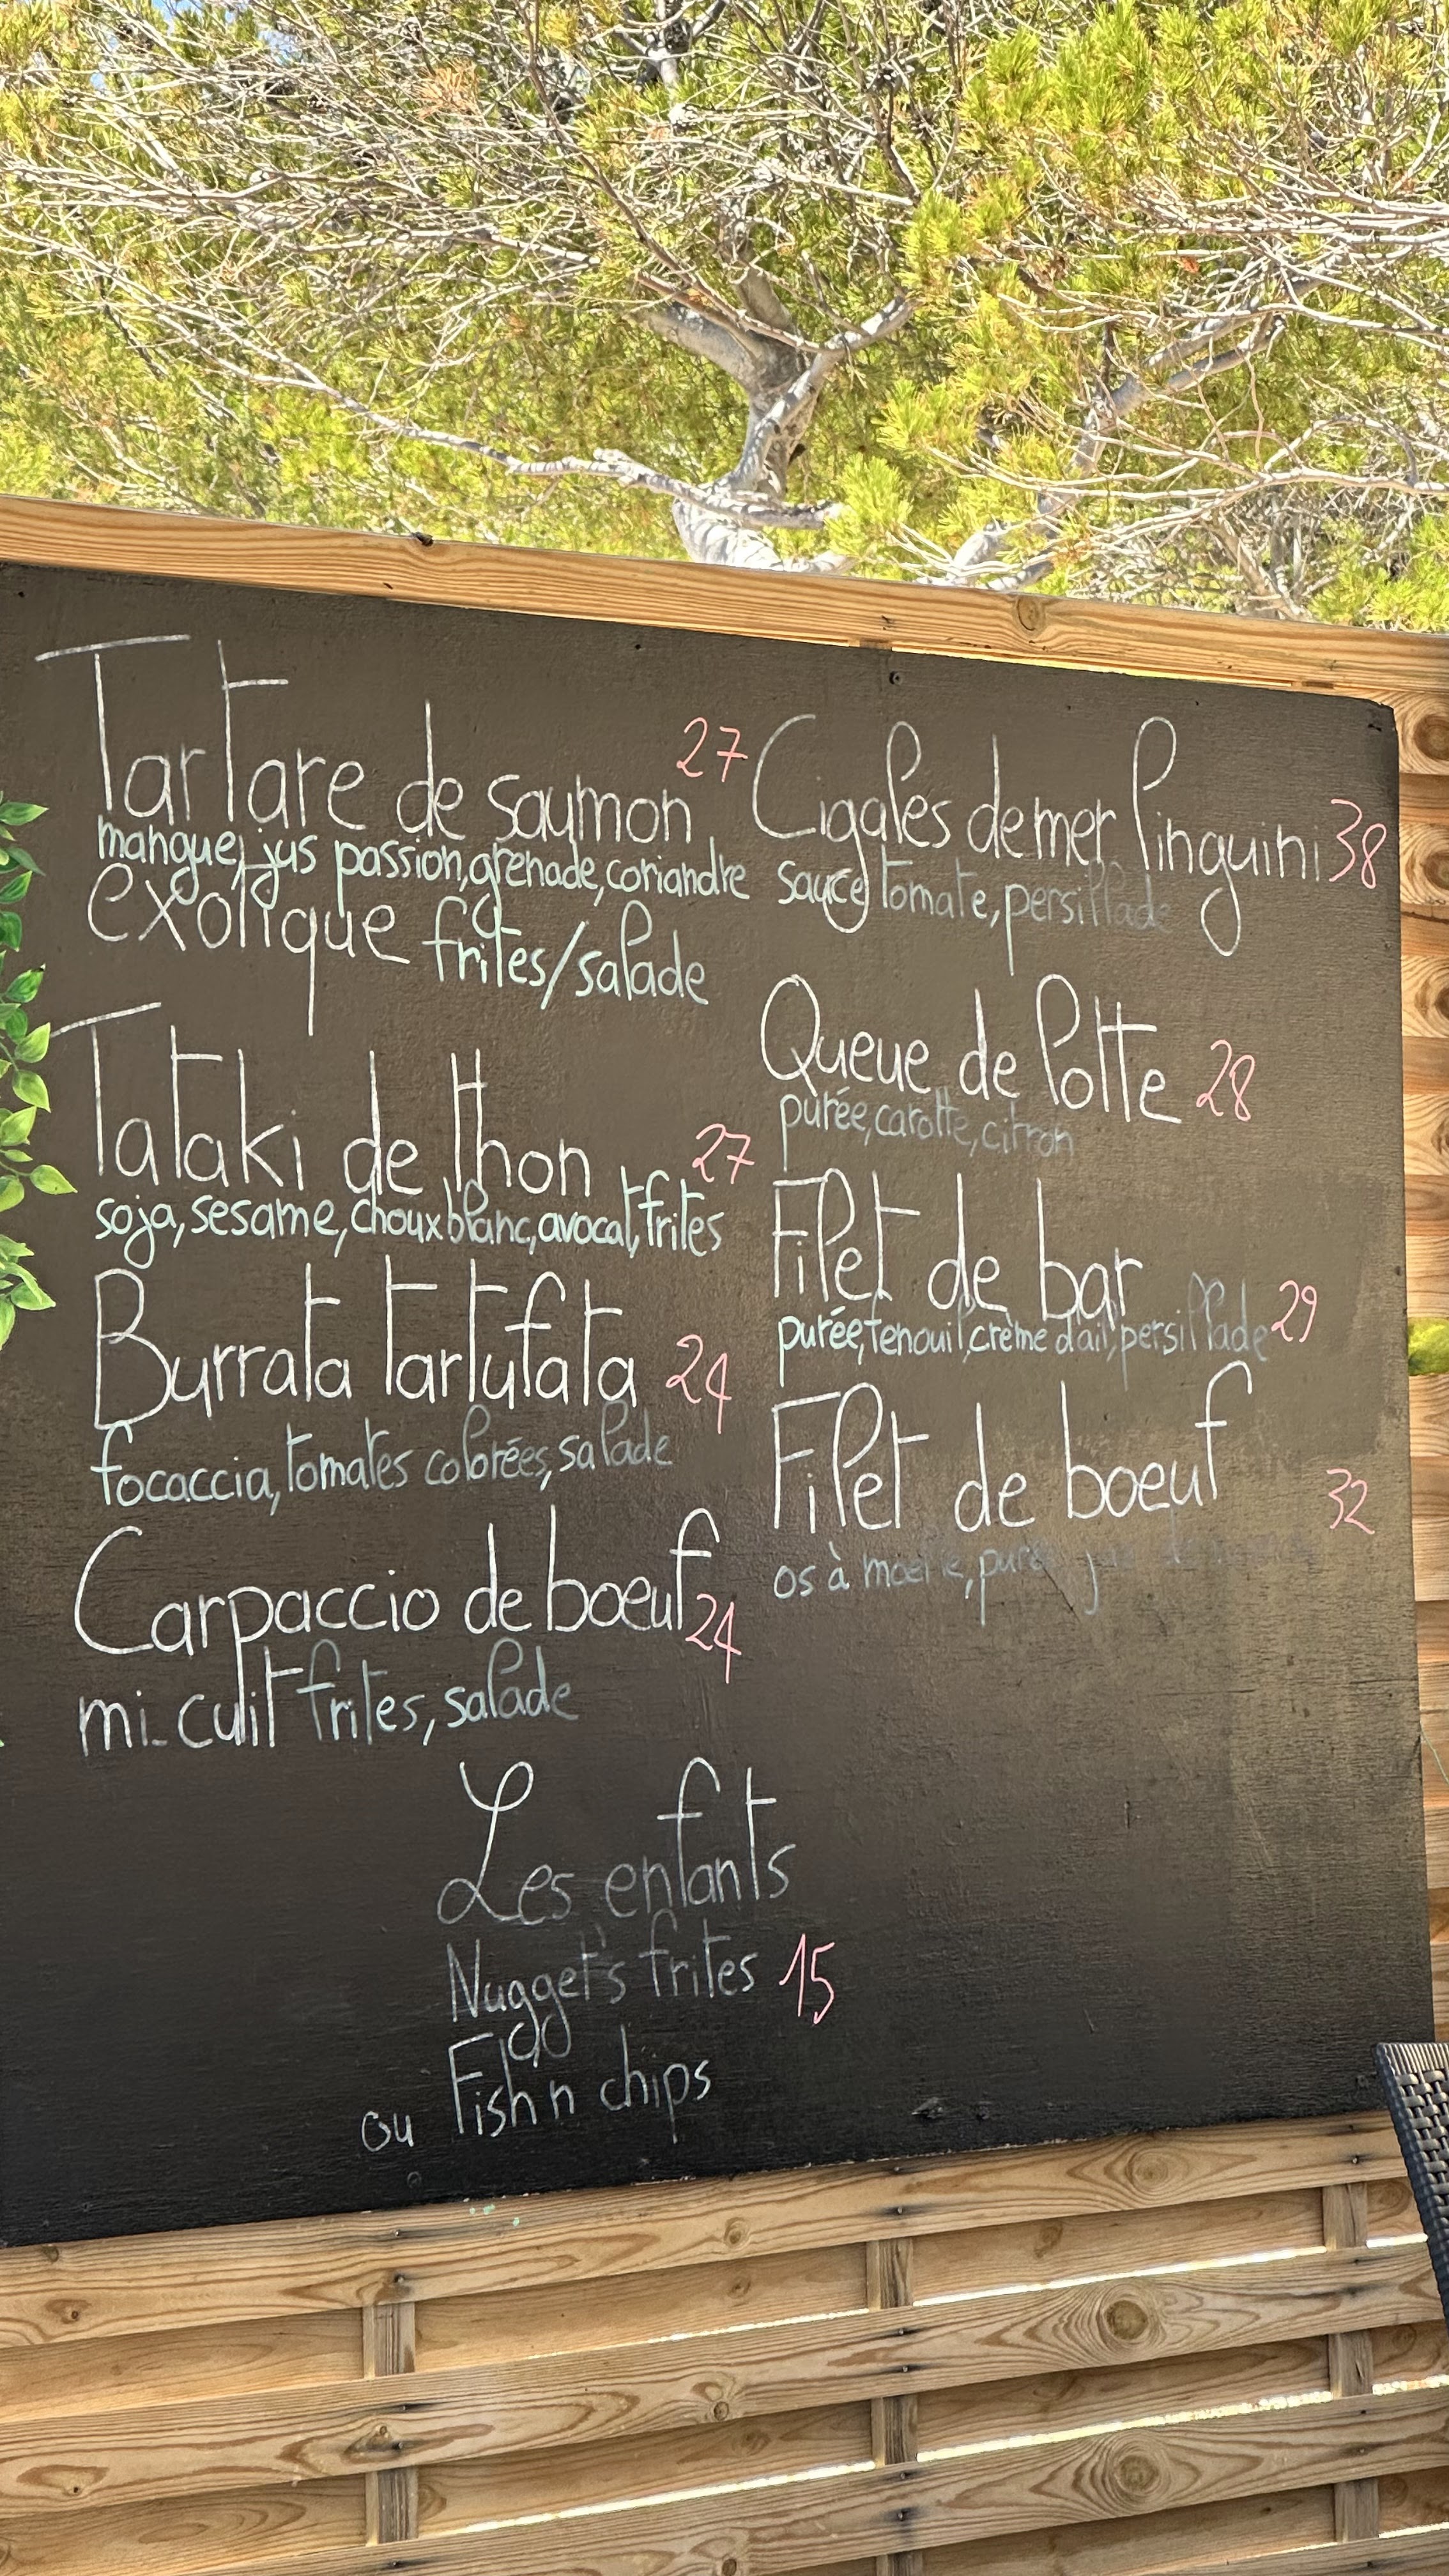 Tartare de saumon 27
mangue, jus passion, grenade, coriandre
exotique frites/salade
Tataki de thon 27
soja, sesame, choux blanc, avocat, frites
Burrata tartufata 24
focaccia, tomates colorées, salade
Carpaccio de boeuf 24
mi-cuit frites, salade
Cigales de mer linguini 38
sauce tomate, persillade
Queue de lotte 28
purée, carotte, citron
Filet de bar
purée, fenouil, crème d'ail, persillade 29
Filet de boeuf 32
os à moelle, purée
Les enfants
Nugget's frites 15
ou Fish n chips